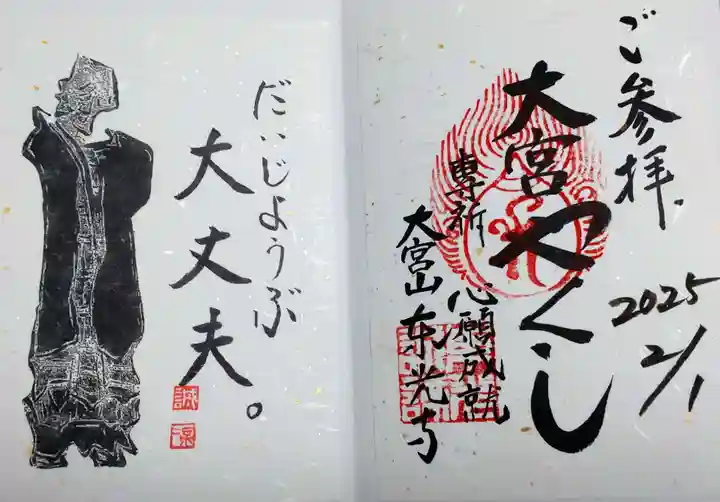 ご参拝
2025
2/1
大宮やくし
専祈 心願成就
大宮山 东光寺
だいじょうぶ
大丈夫。